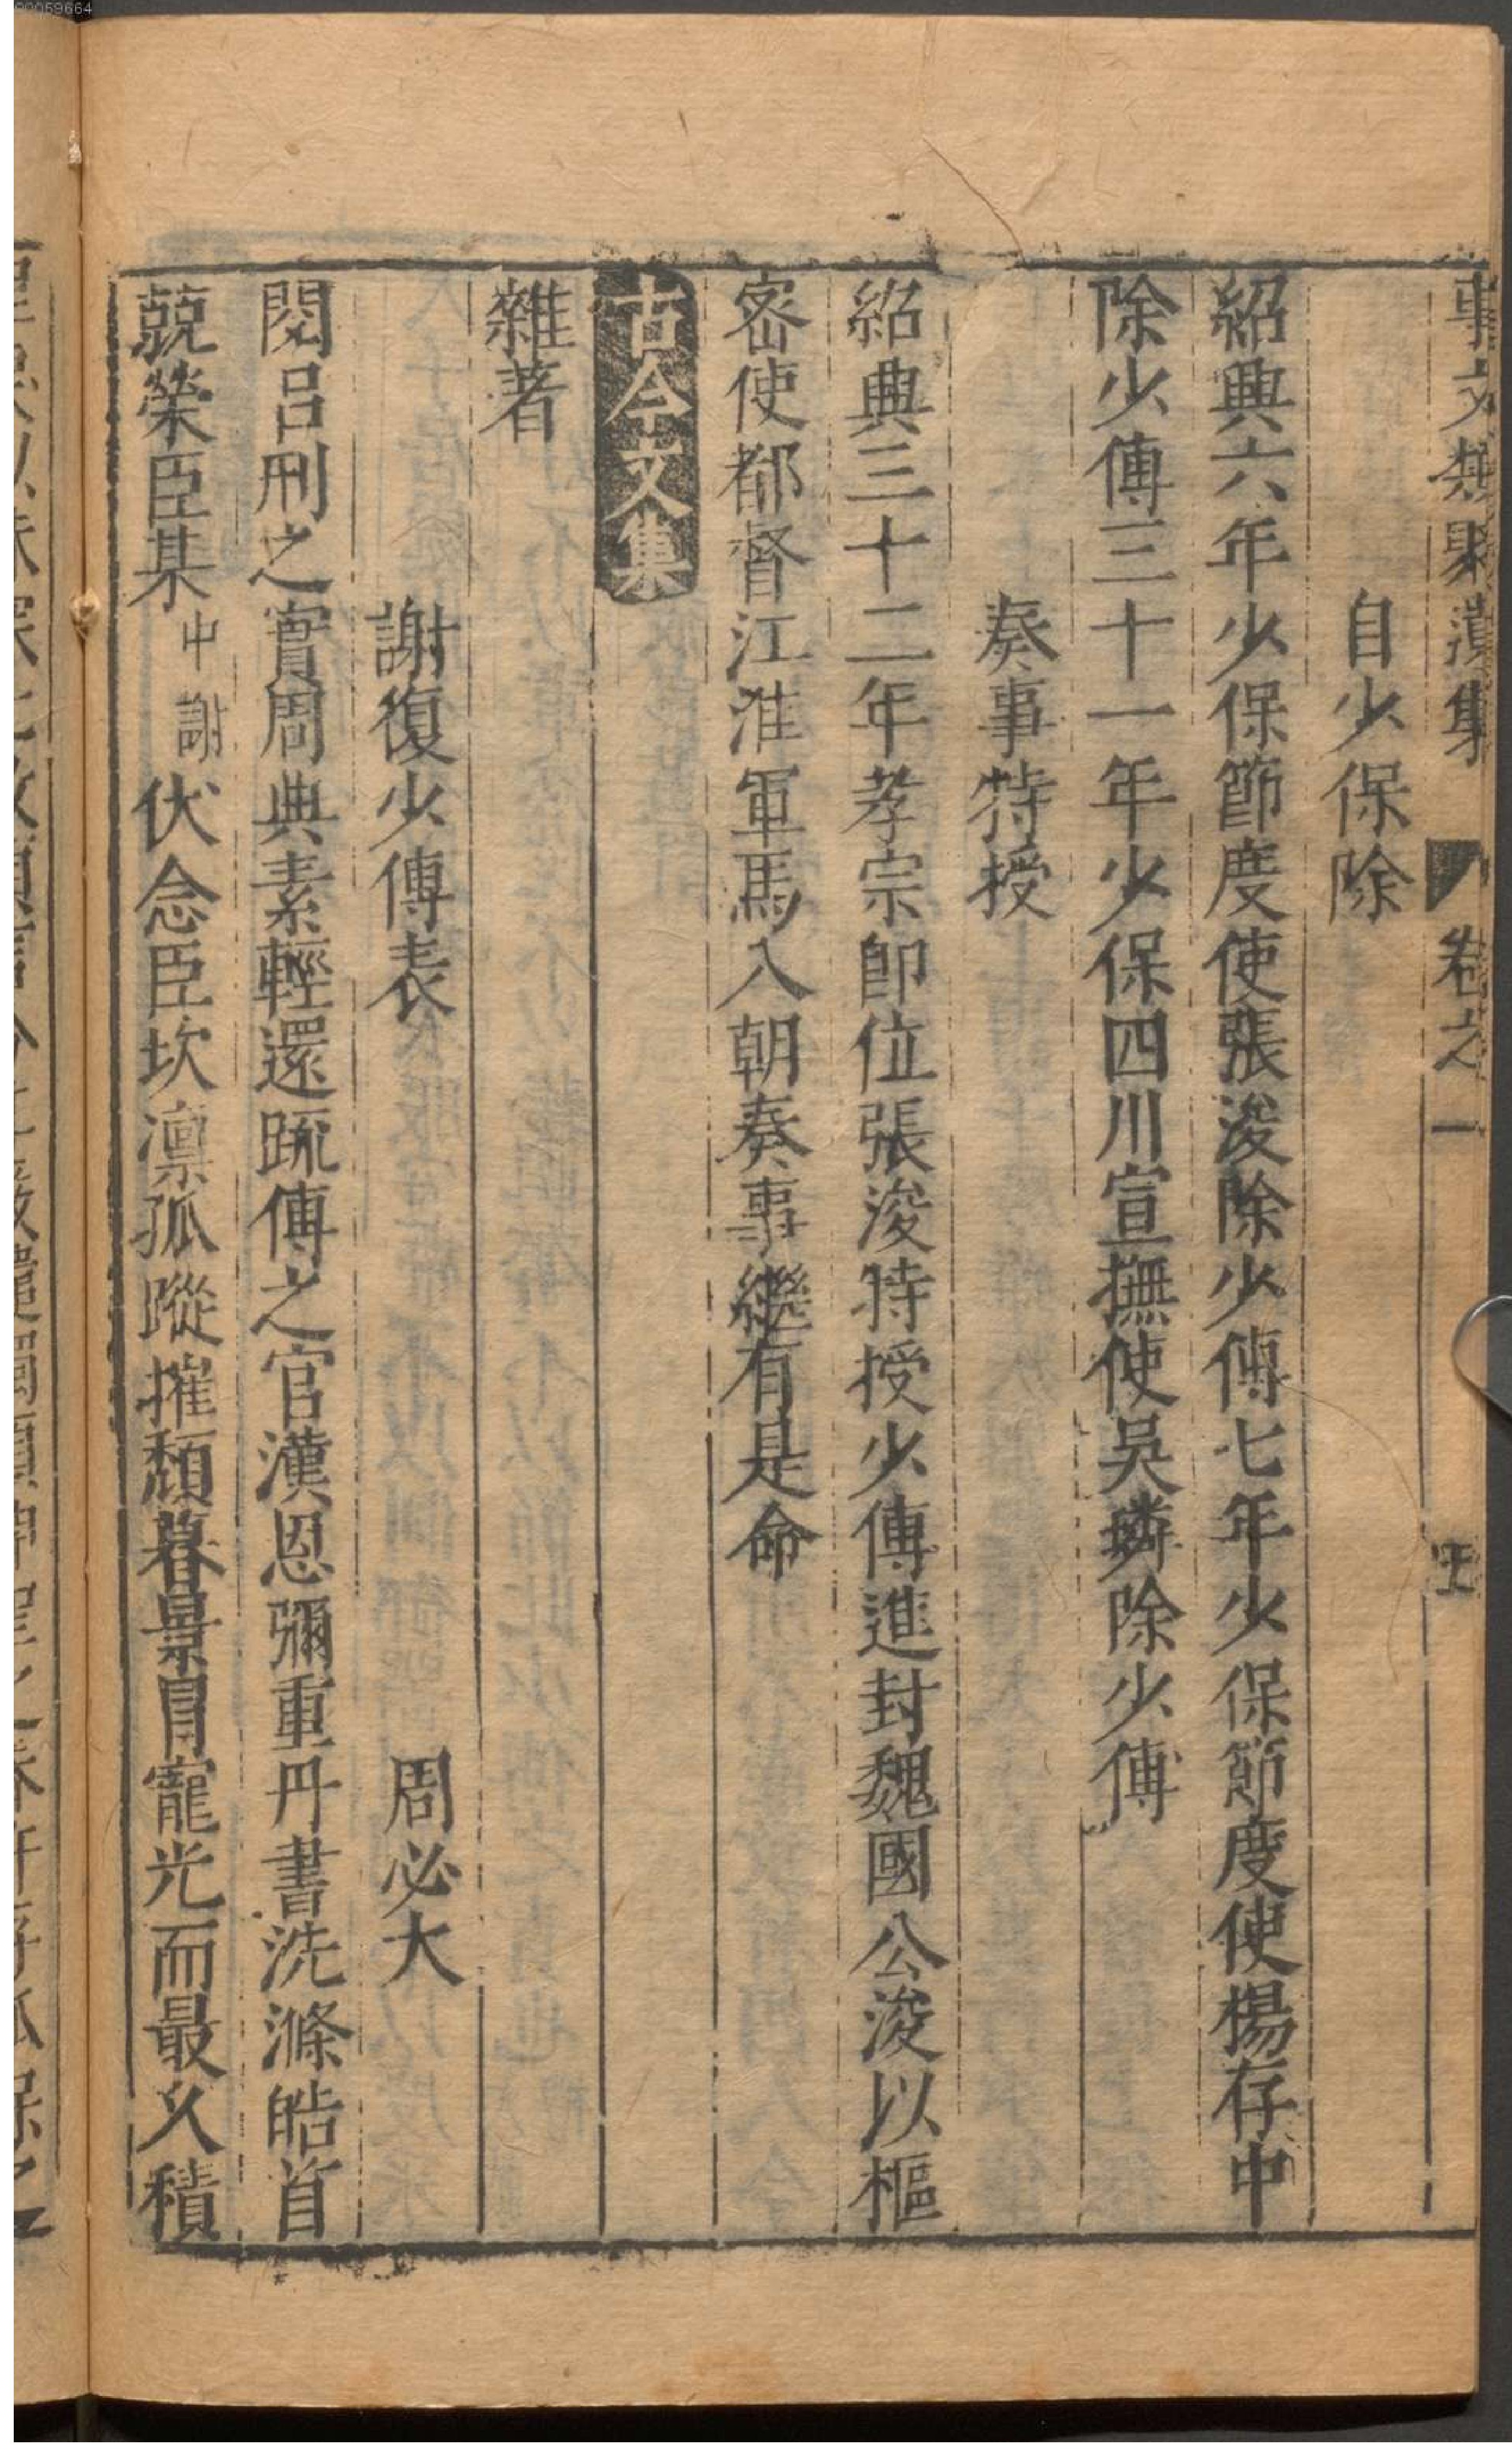 00059664
事文類聚漢集 卷之一
自少保除
紹興六年少保節度使張浚除少傅七年少保節度使楊存中
除少傅三十一年少保四川宣撫使吳璘除少傅
奏事特授
紹興三十二年孝宗卽位張浚特授少傅進封魏國公浚以樞
密使都督江淮軍馬入朝奏事繼有是命
古今文集
雜著
謝復少傅表 周必大
閱呂刑之實周典素輕還䟽傅之官漢恩彌重丹書洗滌皓首
兢榮臣某中謝伏念臣坎凛孤蹤摧頹暮景冒寵光而最久積